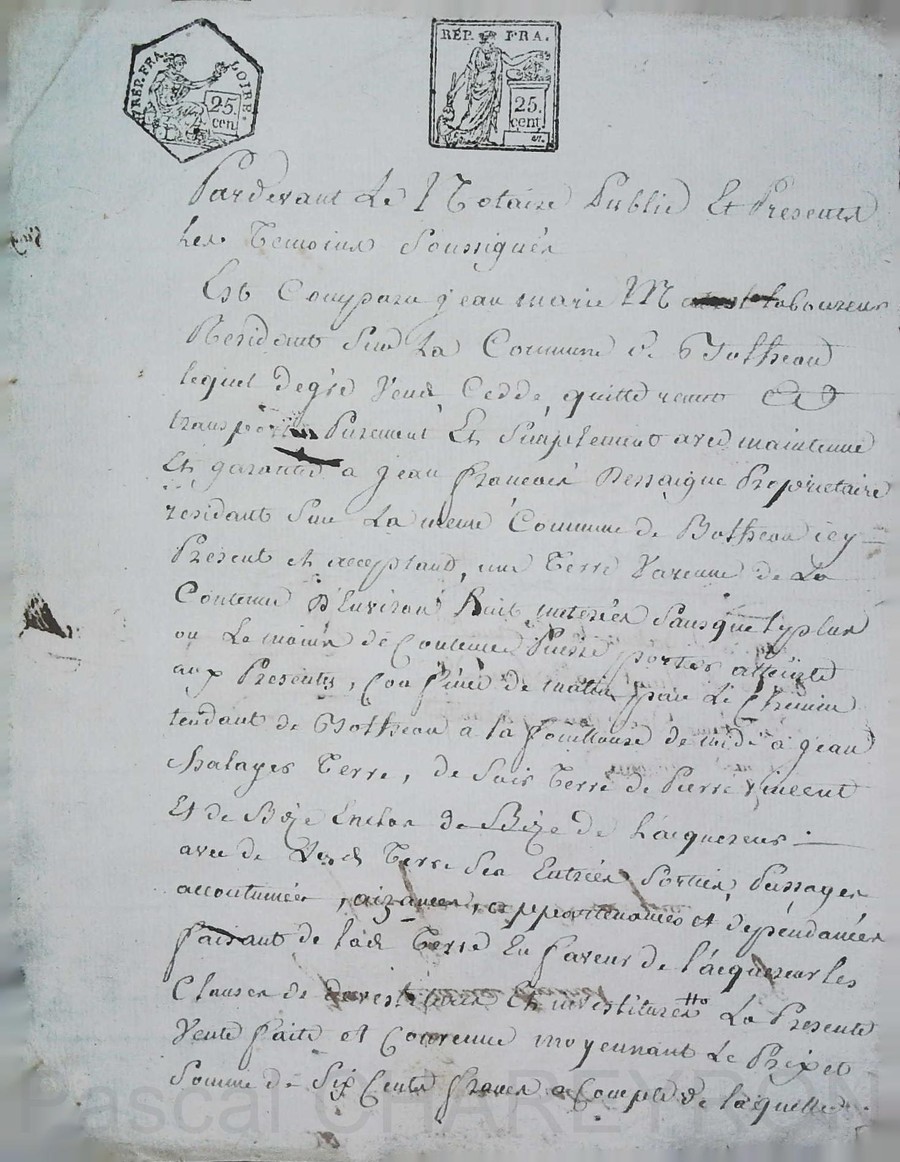 RÉP. FRA. LOIRE.
25. cen.
RÉP. FRA.
25. cent.
Pardevant Le Notaire Public Et Presents
les Temoins Soussignés
Est Comparu jean marie laboureur
Residant Sur La Commune de Botheon
lequel degré Vend, Cedde, quitte remet Et
transporte Purement Et Simplement avec maintenue
Et garantie a jean francois Dessaigne Propriétaire
residant Sur La meme Commune de Botheon icy
Present et acceptant, une Terre Varenne de La
Contenue D'Environ huit meterées Sans que le plus
ou Le moins de Contenue Puisse porter atteinte
aux Presentes, Confinée de matin par Le Chemin
tendant de Botheon a la fouillouse de midi a jean
Chalayer Terre, de Soir Terre de Pierre Vincent
Et de Bize Enclos de Bize de l'acquereur
avec de Terre Ses Entrées Sorties, Passages
accoutumés, aizances, appartenances et dépendances
faisant de lad Terre En faveur de l'acquereur les
Clauses de devestiture Et investiture La Presente
Vente faite et Convenue moyennant Le Prix et
Somme de Six Cents francs a Compte de laquelle
Pascal CHAREYRON